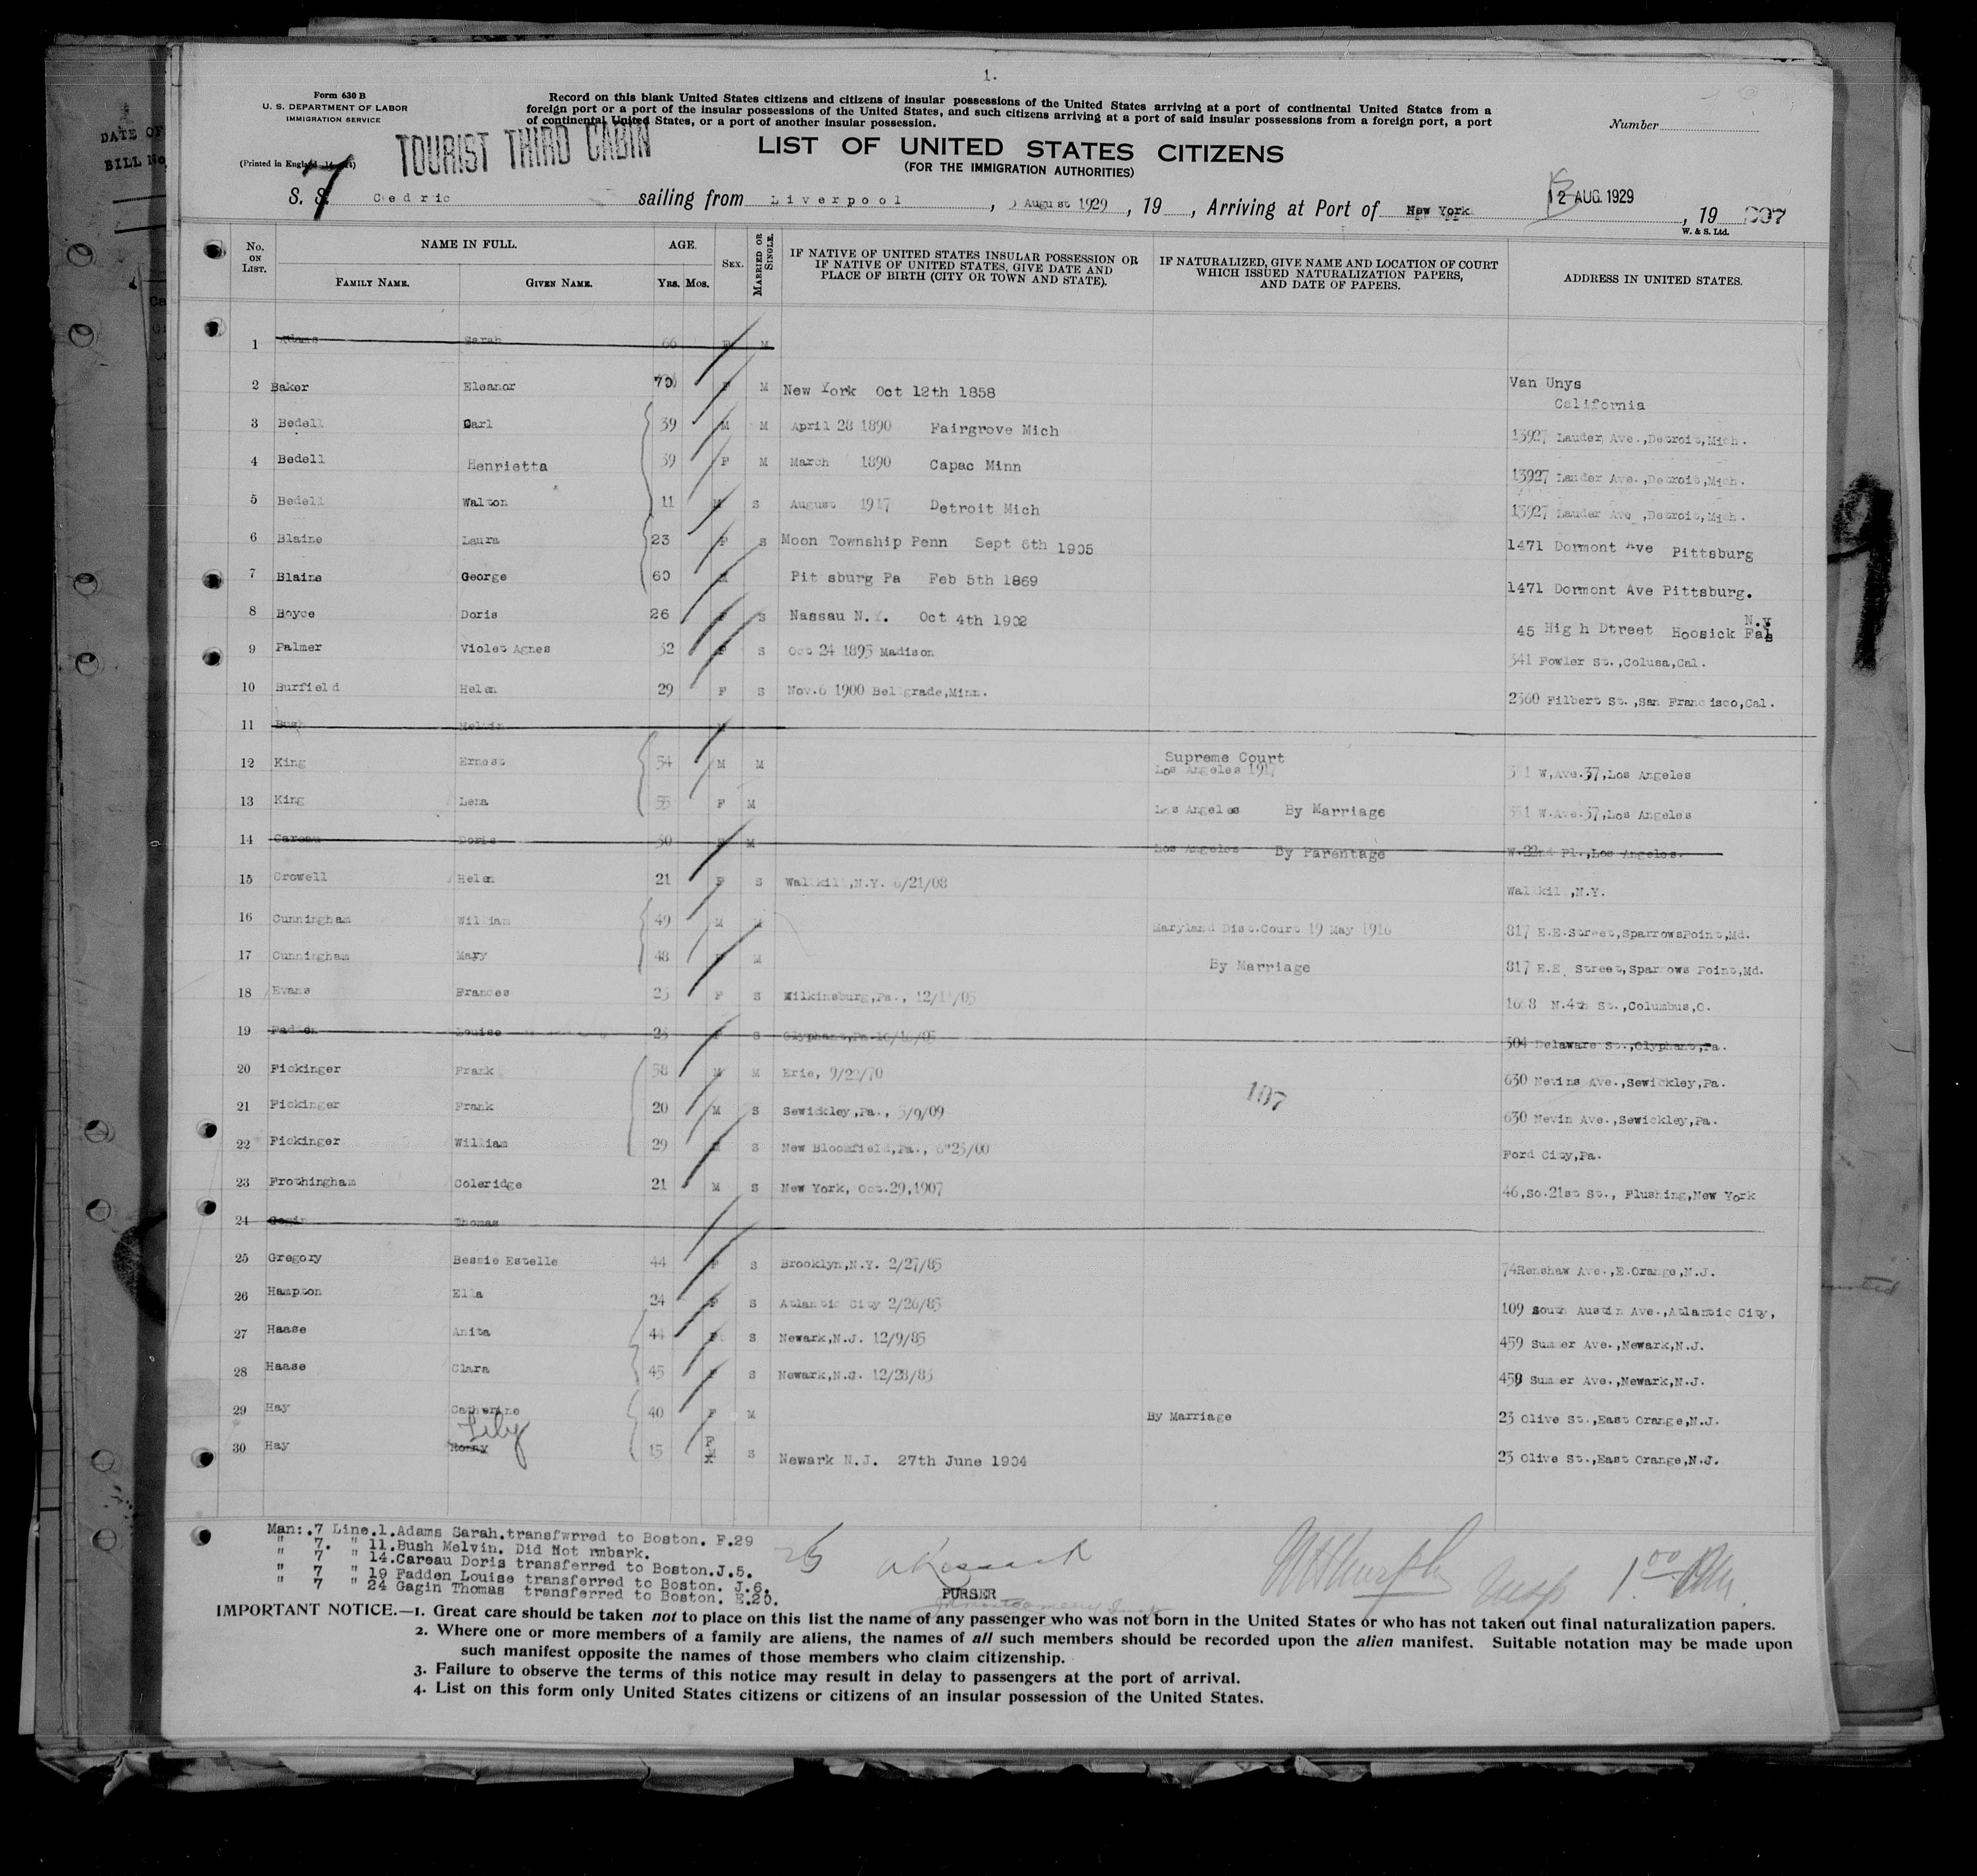 1.
Form 630 B
U. S. DEPARTMENT OF LABOR
IMMIGRATION SERVICE
(Printed in England
Record on this blank United States citizens and citizens of insular possessions of the United States arriving at a port of continental United States from a
foreign port or a port of the insular possessions of the United States, and such citizens arriving at a port of said insular possessions from a foreign port, a port
of continental United States, or a port of another insular possession.
Number
TOURIST THIRD CABIN
LIST OF UNITED STATES CITIZENS
(FOR THE IMMIGRATION AUTHORITIES)
7
S. S. Cedric sailing from Liverpool, August 1929, 19 , Arriving at Port of New York 12 AUG. 1929, 19
W. & S. Ltd.
No. ON LIST. NAME IN FULL. AGE. SEX. MARRIED OR SINGLE. IF NATIVE OF UNITED STATES INSULAR POSSESSION OR IF NATIVE OF UNITED STATES, GIVE DATE AND PLACE OF BIRTH (CITY OR TOWN AND STATE). IF NATURALIZED, GIVE NAME AND LOCATION OF COURT WHICH ISSUED NATURALIZATION PAPERS, AND DATE OF PAPERS. ADDRESS IN UNITED STATES.
FAMILY NAME. GIVEN NAME. Yrs. Mos.
1 Adams Sarah 66 F M
2 Baker Eleanor 70 F M New York Oct 12th 1858 Van Unys California
3 Bedell Carl 39 M M April 28 1890 Fairgrove Mich 13927 Lauder Ave.,Detroit,Mich.
4 Bedell Henrietta 39 F M March 1890 Capac Minn 13927 Lauder Ave.,Detroit,Mich.
5 Bedell Walton 11 M S August 1917 Detroit Mich 13927 Lauder Ave ,Detroit,Mich.
6 Blaine Laura 23 F S Moon Township Penn Sept 6th 1905 1471 Dormont Ave Pittsburg
7 Blaine George 60 M Pit sburg Pa Feb 5th 1869 1471 Dormont Ave Pittsburg.
8 Boyce Doris 26 F S Nassau N.Y. Oct 4th 1902 45 Hig h Dtreet Hoosick Fals N.Y
9 Palmer Violet Agnes 32 F S Oct 24 1895 Madison 341 Fowler St.,Colusa,Cal.
10 Burfield Helen 29 F S Nov.6 1900 Bellgrade,Minn. 2360 Filbert St.,San Francisco,Cal.
11 Bush Melvin M
12 King Ernest 54 M M Supreme Court Los Angeles 1917 W,Ave.37,Los Angeles
13 King Lena 55 F M Los Angeles By Marriage W.Ave.37,Los Angeles
14 Careau Doris 30 F M Los Angeles By Parentage W.22nd Pl.,Los Angeles.
15 Crowell Helen 21 F S Wallkill,N.Y. 6/21/08 Wallkill,N.Y.
16 Cunningham William 49 M M Maryland Dist.Court 19 May 1916 817 E.E.Street,SparrowsPoint,Md.
17 Cunningham Mary 48 F M By Marriage 817 E.E. Street,Sparrows Point,Md.
18 Evans Frances 23 F S Wilkinsburg,Pa., N.4th St.,Columbus,O.
19 Fadden Louise 23 F S Olyphant,Pa. 304 Delaware St.,Olyphant,Pa.
20 Fickinger Frank 58 M M Erie, 9/22/70 630 Nevins Ave.,Sewickley,Pa.
21 Fickinger Frank 20 M S Sewickley,Pa., 3/9/09 630 Nevin Ave.,Sewickley,Pa.
107
22 Fickinger William 29 M S New Bloomfield,Pa., 6"25/00 Ford City,Pa.
23 Frothingham Coleridge 21 M S New York, Oct.29,1907 46,So.21st St., Flushing,New York
24 Gagin Thomas
25 Gregory Bessie Estelle 44 F S Brooklyn,N.Y. 2/27/85 74Renshaw Ave.,E.Orange,N.J.
26 Hampton Ella 24 F S Atlantic City 2/26/85 109 South Austin Ave.,Atlantic City,
27 Haase Anita 44 F S Newark,N.J. 12/9/85 459 Summer Ave.,Newark,N.J.
28 Haase Clara 45 F S Newark,N.J. 12/28/83 459 Summer Ave.,Newark,N.J.
29 Hay Catherine 40 F M By Marriage 23 Olive St.,East Orange,N.J.
Lily
30 Hay Ronny 15 F M S Newark N.J. 27th June 1904 23 Olive St.,East Orange,N.J.
Man:.7 Line.1.Adams Sarah.transfwrred to Boston. F.29
" 7. " 11.Bush Melvin. Did Not rmbark.
" 7 " 14.Careau Doris transferred to Boston.J.5.
" 7 " 19 Fadden Louise transferred to Boston. J.6.
" 7 " 24 Gagin Thomas transferred to Boston. E.20.
PURSER
Insp
IMPORTANT NOTICE.—1. Great care should be taken not to place on this list the name of any passenger who was not born in the United States or who has not taken out final naturalization papers.
2. Where one or more members of a family are aliens, the names of all such members should be recorded upon the alien manifest. Suitable notation may be made upon
such manifest opposite the names of those members who claim citizenship.
3. Failure to observe the terms of this notice may result in delay to passengers at the port of arrival.
4. List on this form only United States citizens or citizens of an insular possession of the United States.